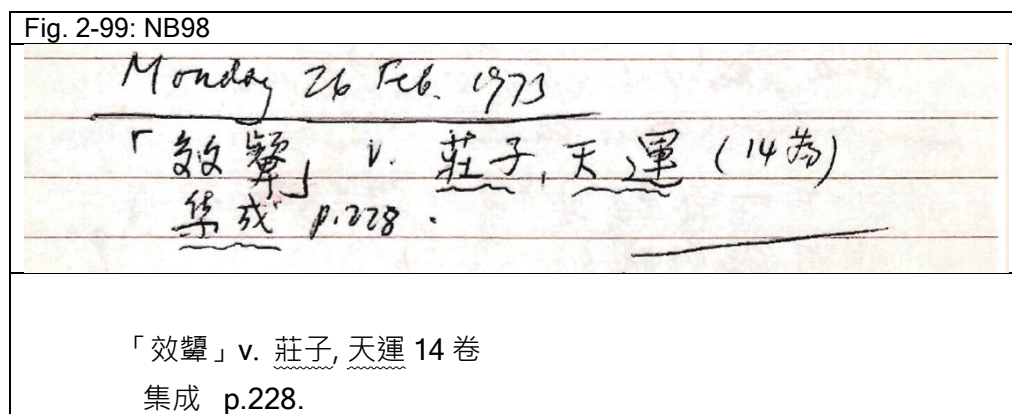 Fig. 2-99: NB98
Monday 26 Feb. 1973
「效顰」 v. 莊子, 天運 (14卷)
集成 p.228.
「效顰」v. 莊子, 天運 14 卷
集成 p.228.